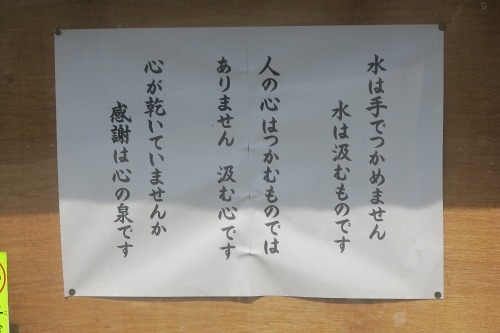 水は手でつかめません
水は汲むものです
人の心はつかむものでは
ありません　汲む心です
心が乾いていませんか
感謝は心の泉です